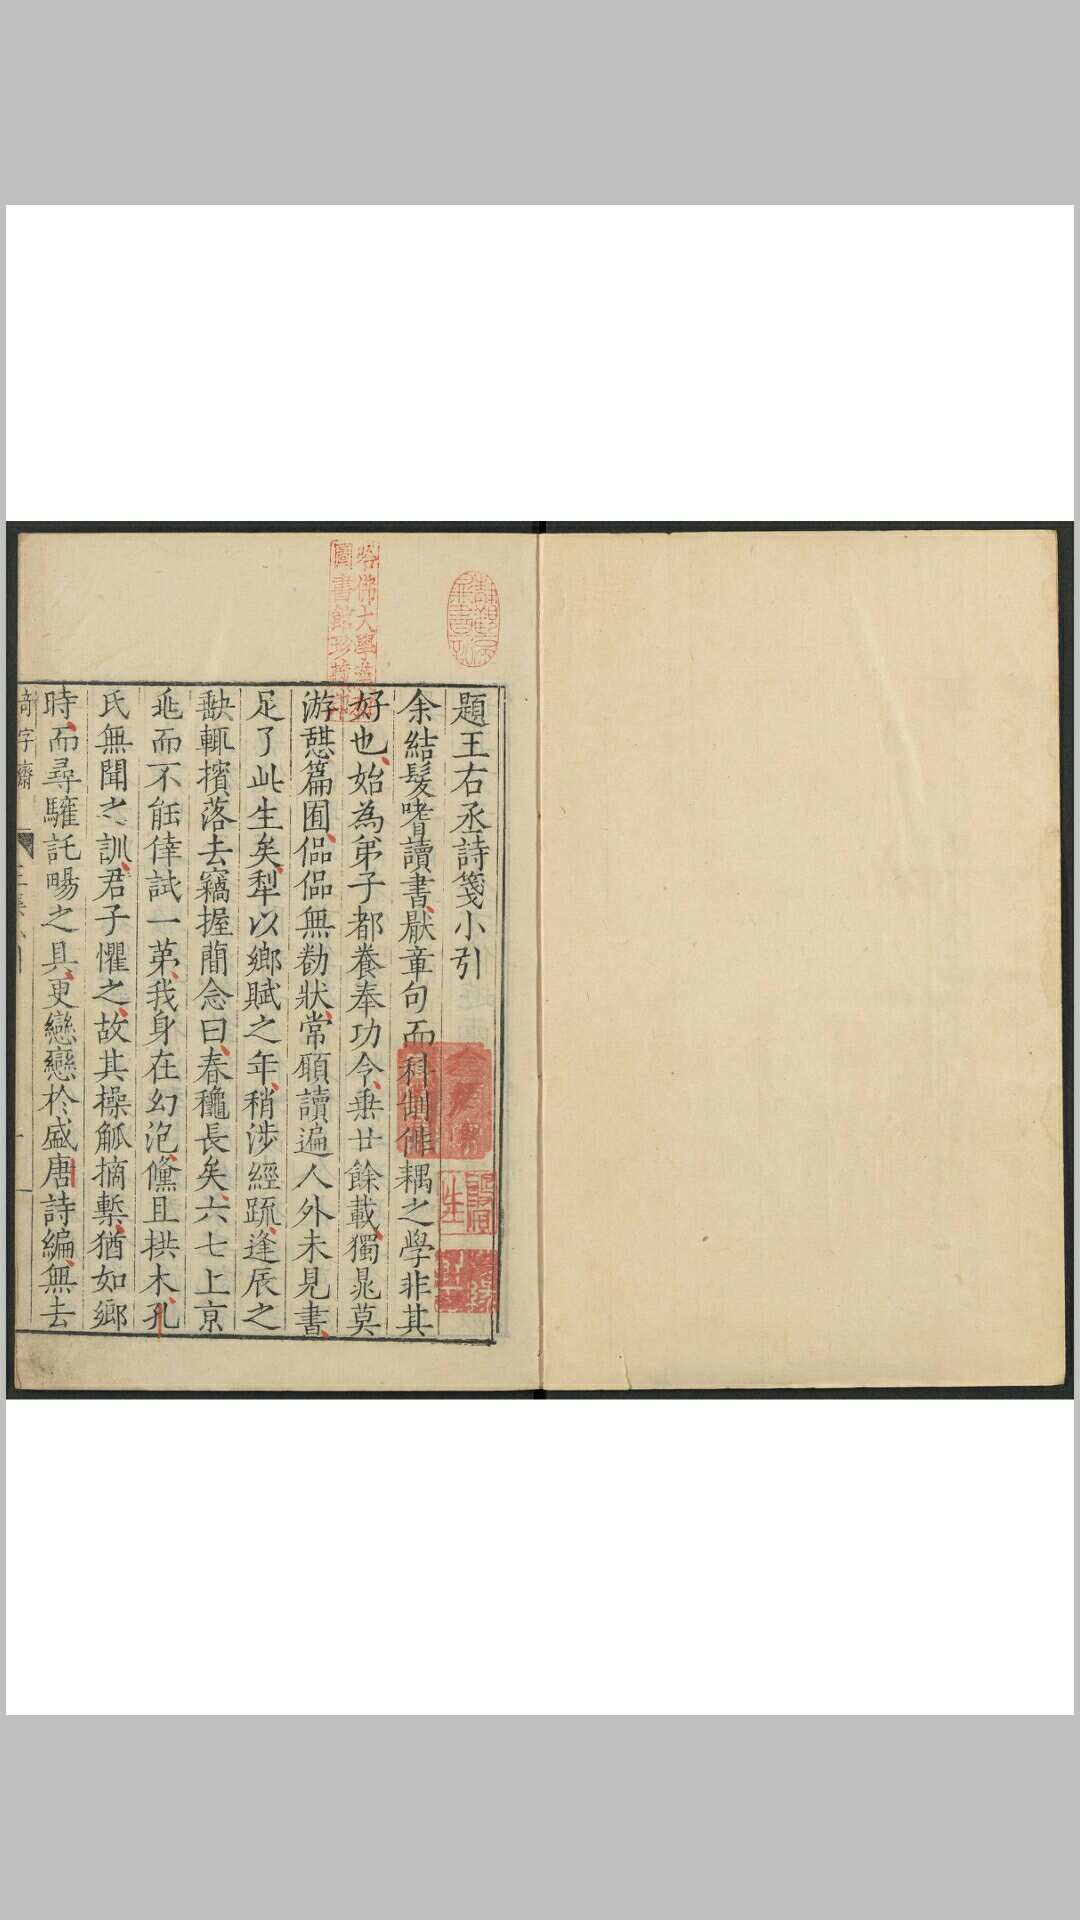 題王右丞詩箋小引
余結髮嗜讀書、厭章句、而科制俳耦之學、非其
好也、始為弟子都養、奉功令、垂廿餘載、獨晁莫
游憇篇囿、偘偘無勌狀、常願讀遍人外未見書、
足了此生矣、犁以鄉賦之年、稍涉經疏、逢辰之
觖、輒擯落去、竊握蕳念曰、春穐長矣、六七上京
兆而不能倖試一苐、我身在幻泡、儻且拱木、孔
氏無聞之訓、君子懼之、故其操觚摘槧、猶如鄉
時、而尋驩託暢之具、更戀戀於盛唐詩編、無去
奇字齋
哈佛大學
圖書館珍藏